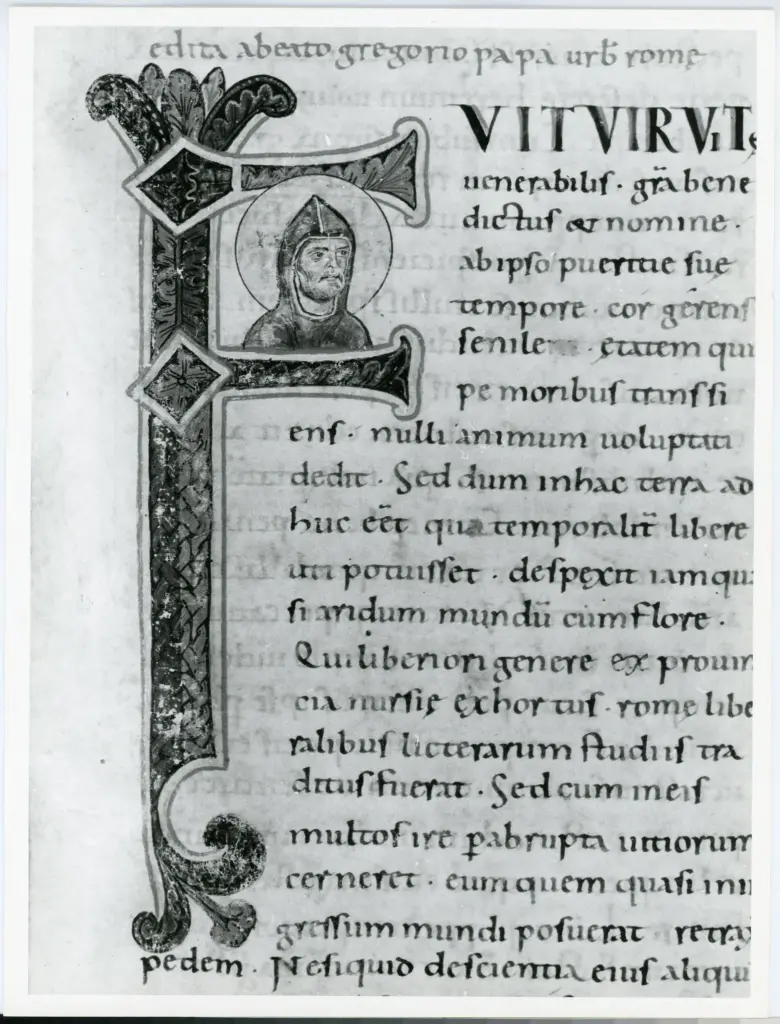 edita abeato gregorio papa urb̄ romę
FVIT VIR VITę
uenerabilis · gr̄a bene
dictus et nomine ·
ab ipso pueritię suę
tempore · cor gerens
senile · ętatem qui
pe moribus transsi
ens · nulli animum uoluptati
dedit · Sed dum inhac terra ad
huc eēt qua temporalit̄ libere
uti potuisset · despęxit iam qua
si aridum mundū cum flore ·
Qui liberiori genere ex prouin
cia nursię ęxhortus · romę libe
ralibus litterarum studiis tra
ditus fuerat · Sed cum in eis
multos ire ꝑ abrupta uitiorum
cerneret · eum quem quasi ini
gressum mundi posuerat retrax
pedem · Ne siquid descientia eius aliqui